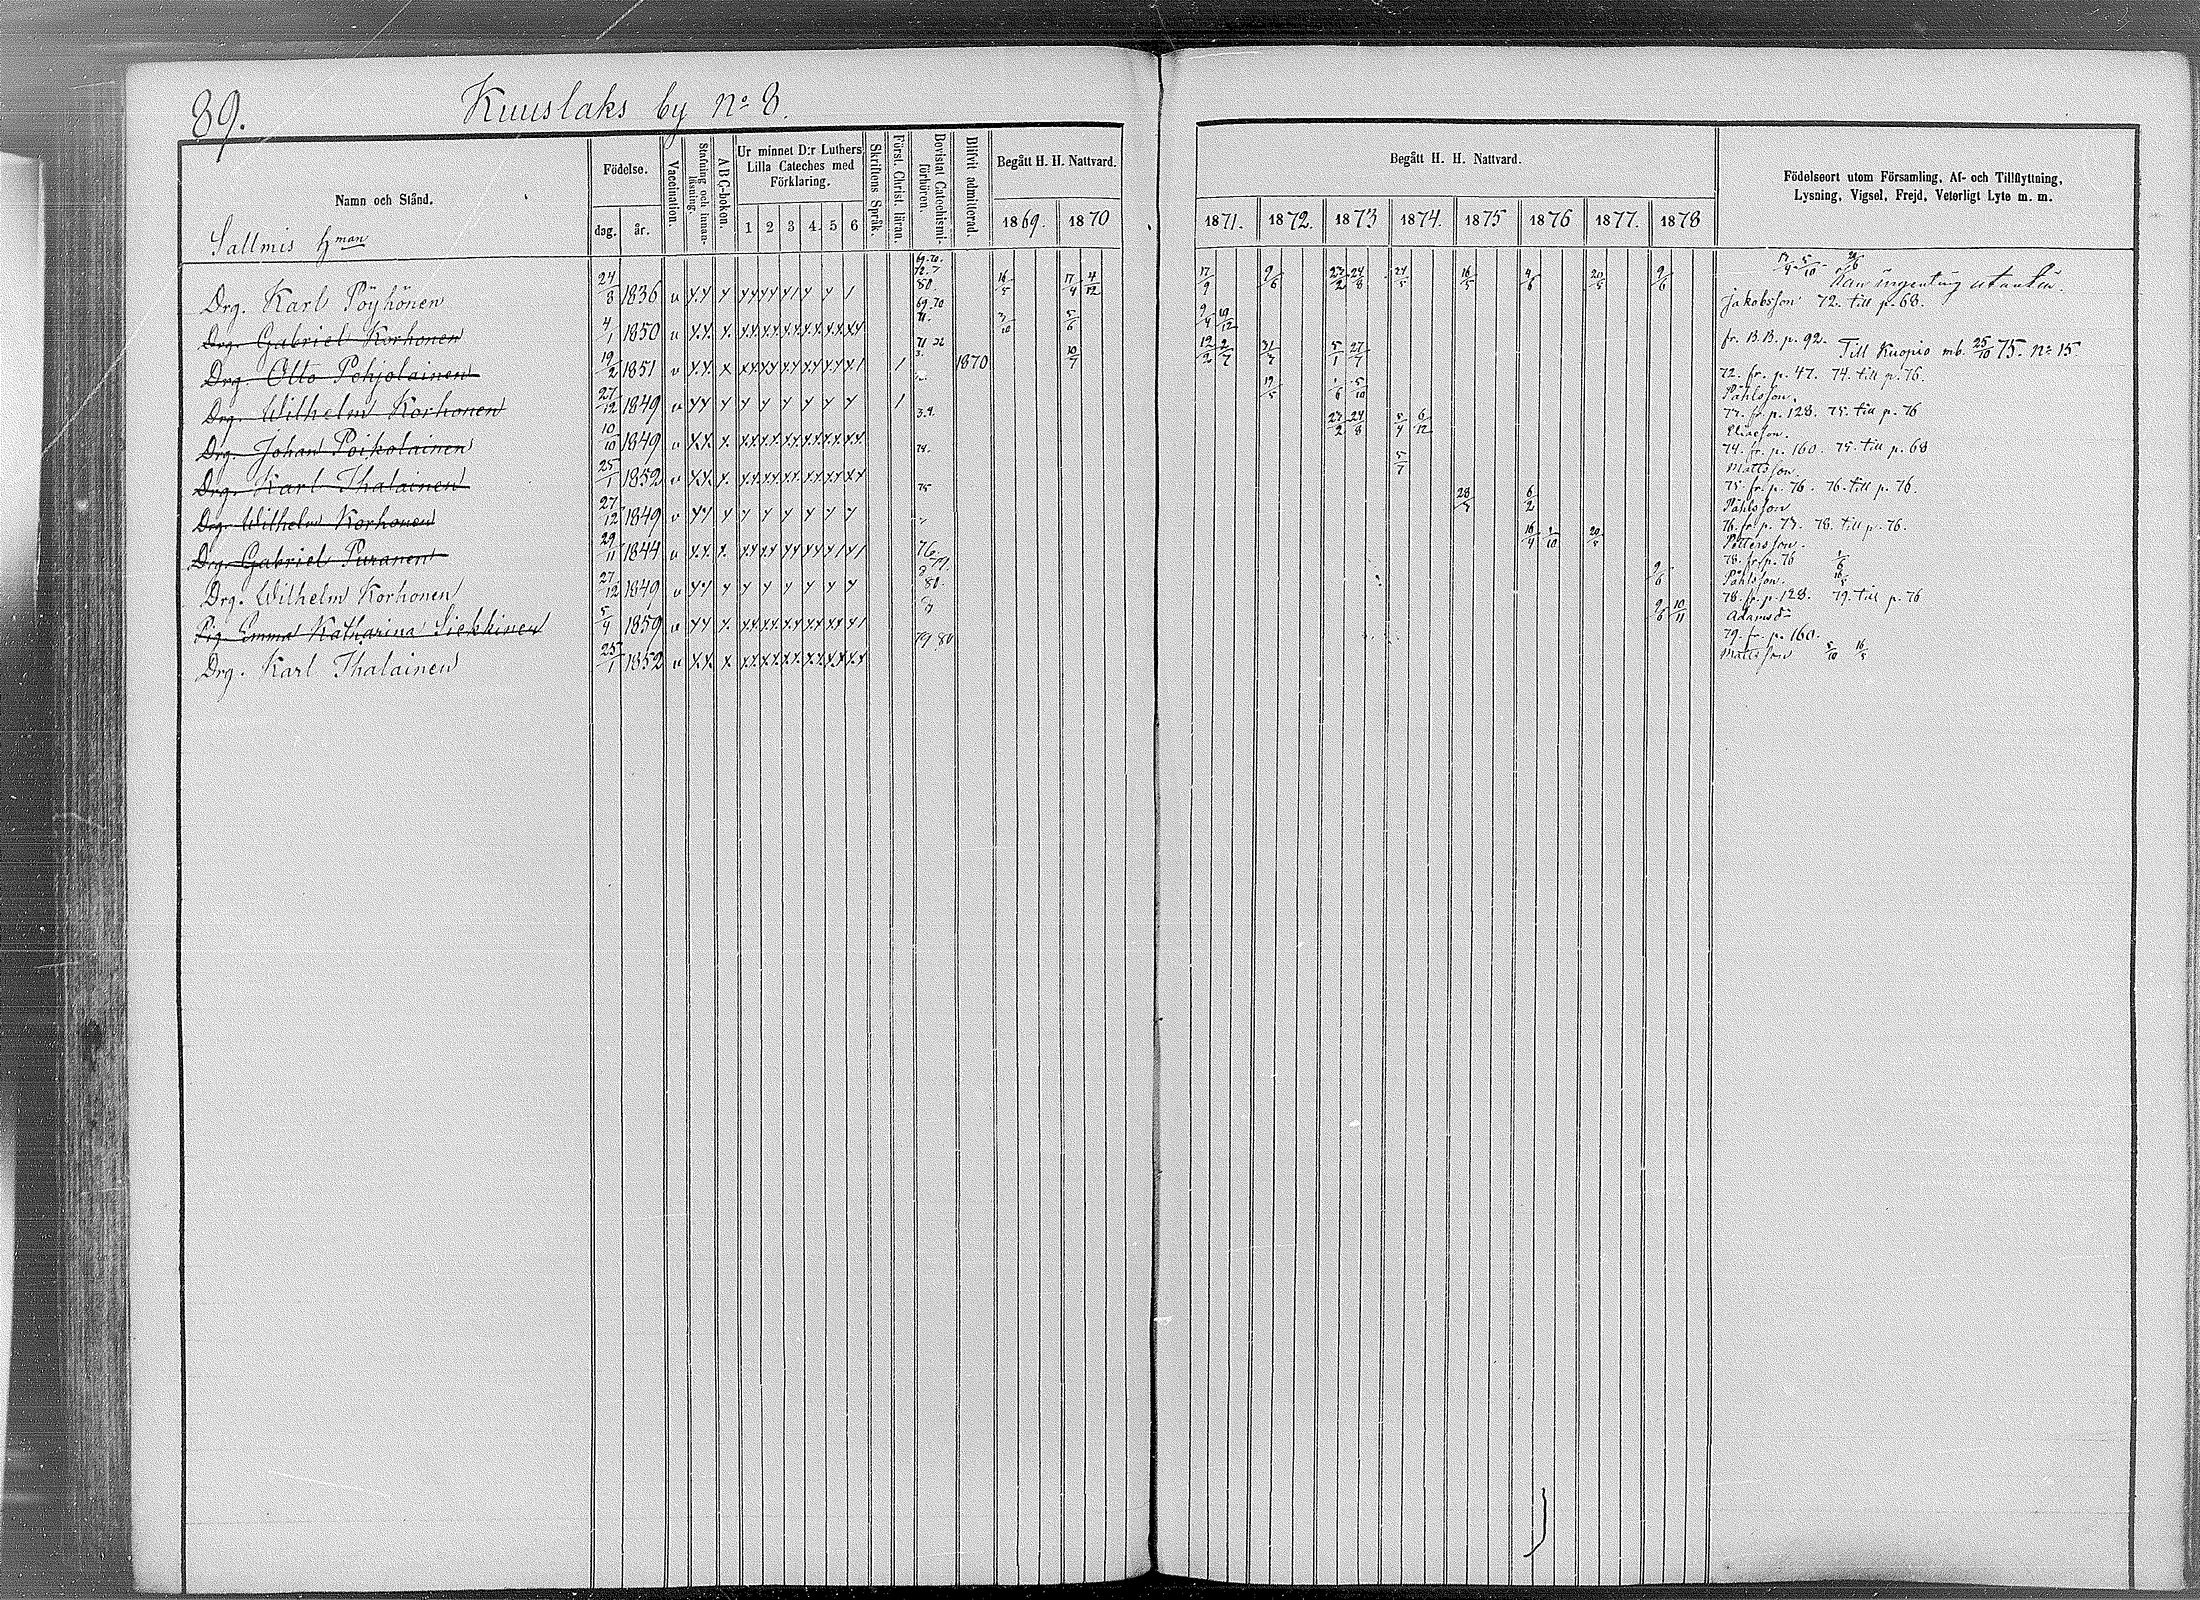 89.
Kuuslaks by No 8.
Namn och Stånd.
Födelse.
dag.
år.
Vaccination.
Stafning och innanläsning.
ABC-boken.
Ur minnet D:r Luthers Lilla Cateches med Förklaring.
1 2 3 4 5 6
Skriftens Språk.
Först. Christ. läran.
Bevistat Catechismi-förhören.
Blifvit admitterad.
Begått H. H. Nattvard.
1869. 1870
Begått H. H. Nattvard.
1871. 1872. 1873 1874. 1875 1876 1877. 1878
Födelseort utom Församling, Af- och Tillflyttning,
Lysning, Vigsel, Frejd, Veterligt Lyte m. m.
Sallmis hman
Drg. Karl Pöyhönen 24/8 1836 16/5 17/4 4/12 17/9 9/6 23/2 24/8 24/5 16/5 4/6 20/5 9/6
Drg. Gabriel Korhonen 4/1 1850 3/10 5/6 9/4 10/12 Jakobsson 72. till p. 68.
Drg. Otto Pohjolainen 19/2 1851 1870 10/7 12/2 2/7 31/7 5/1 27/7 fr. B.B. p. 92. Till Kuopio mb. 25/10 75. No 15.
Drg. Wilhelm Korhonen 27/12 1849 19/5 1/6 5/10 72. fr. p. 47. 74. till p. 76.
Påhlsson.
Drg. Johan Poikolainen 10/10 1849 3.4. 23/2 24/8 5/4 6/12 73. fr. p. 128. 75. till p. 76
Eliasson.
Drg. Karl Thalainen 25/1 1852 74. 5/7 74. fr. p. 160. 75. till p. 68
Mattsson
Drg. Wilhelm Korhonen 27/12 1849 75 28/3 6/2 75. fr. p. 76. 76. till p. 76.
Påhlsson
Drg. Gabriel Puranen 29/11 1844 16/4 1/10 20/5 76. fr. p. 73. 78. till p. 76.
Pettersson.
Drg. Wilhelm Korhonen 27/12 1849 80. 9/6 78. fr. p. 76
Påhlsson.
Pig. Emma Katharina Siekkinen 5/4 1859 9/6 10/11 78. fr. p. 128. 79. till p. 76
Adamsd
Drg. Karl Thalainen 25/1 1852 79.80 79. fr. p. 160.
Mattsson 5/10 16/5